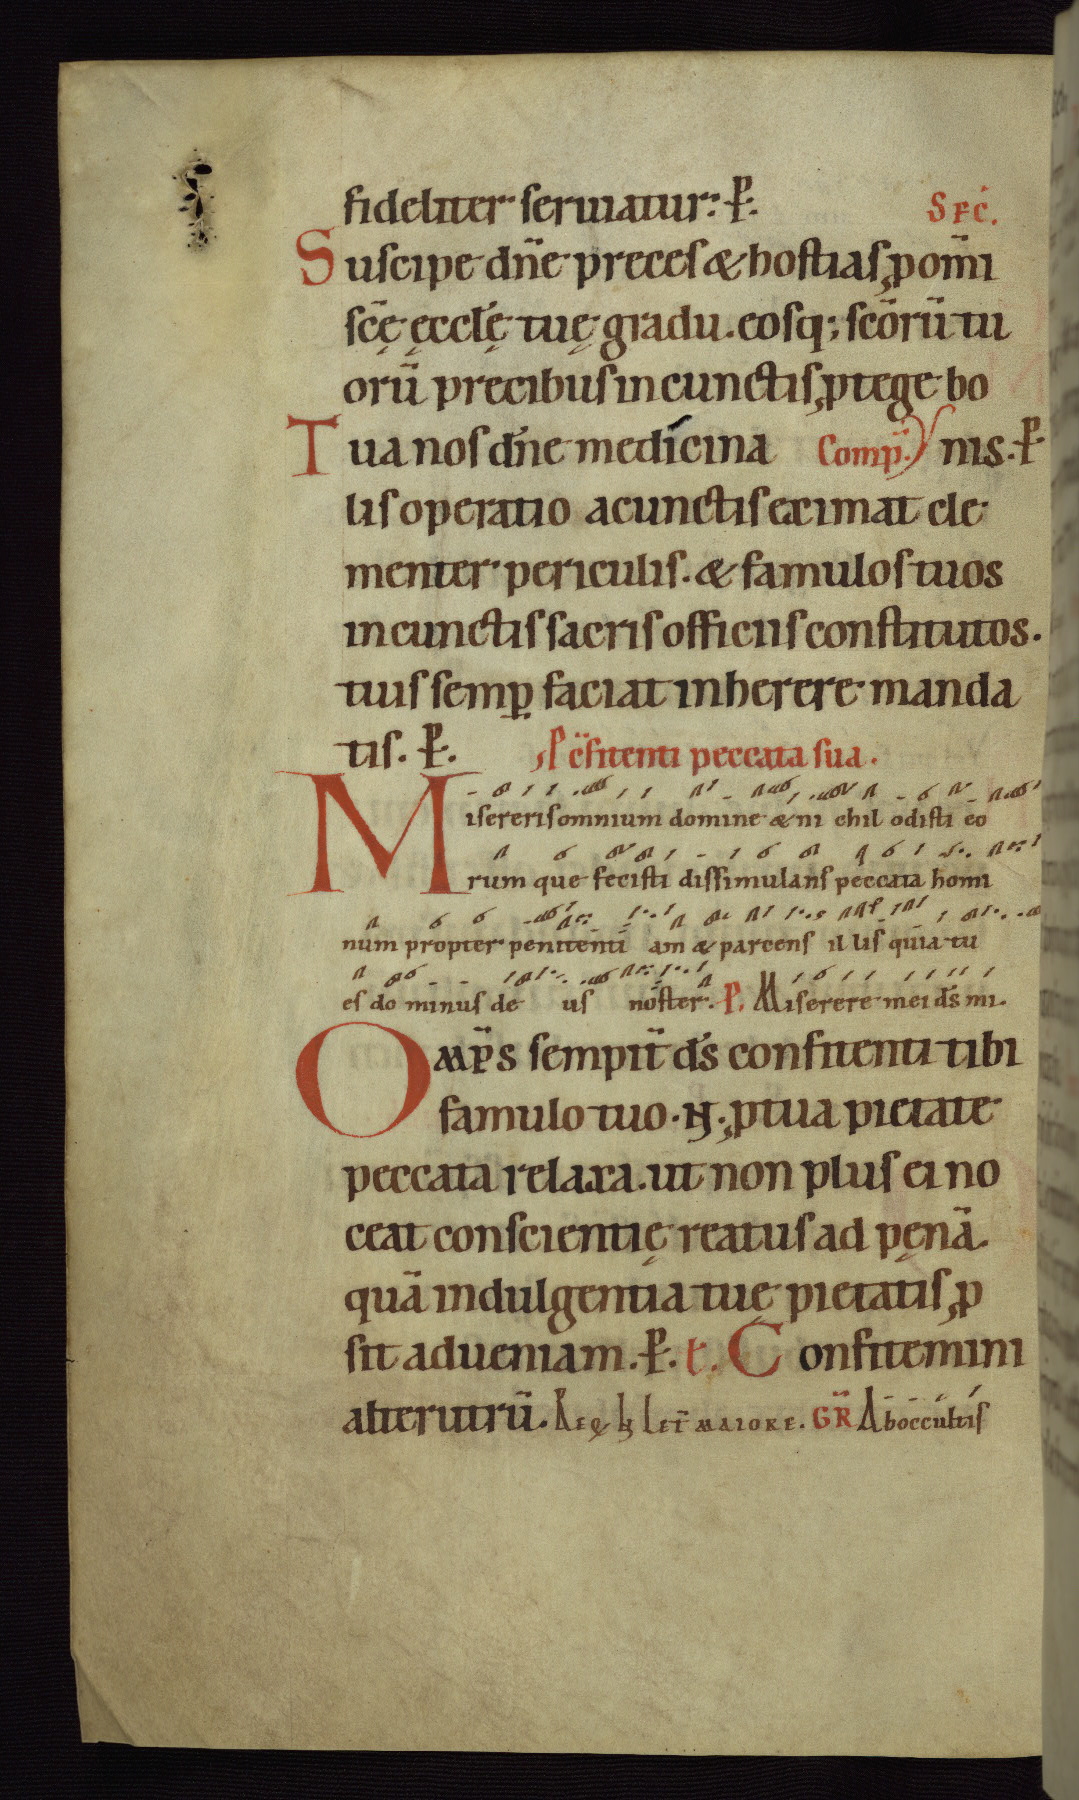 fideliter seruiatur: P. SEC.
Suscipe dn̄e preces & hostias p om̄i
sc̄ę ęccl̄ę tuę gradu. eosq; sc̄orū tu
orū precibus in cunctis ptege bo
Tua nos dn̄e medicina Comp̄. nis. P
lis operatio a cunctis eximat cle
menter periculis. & famulos tuos
in cunctis sacris officiis constitutos.
tuis semp̱ faciat inherere manda
tis. P. P c̄fitenti peccata sua.
Misereris omnium domine & ni chil odisti eo
rum que fecisti dissimulans peccata homi
num propter penitenti am & parcens il lis quia tu
es do minus de us noster. P. Miserere mei d̄s mi.
Omp̄s sempit̄ d̄s confitenti tibi
famulo tuo .N. p tua pietate
peccata relaxa. ut non plus ei no
ceat conscientię reatus ad pęnā.
quā indulgentia tuę pietatis p
sit ad ueniam. P. t. Confitemini
alterutrū. Req̄ LET̄ MAIORE. GR̄ Ab occultis